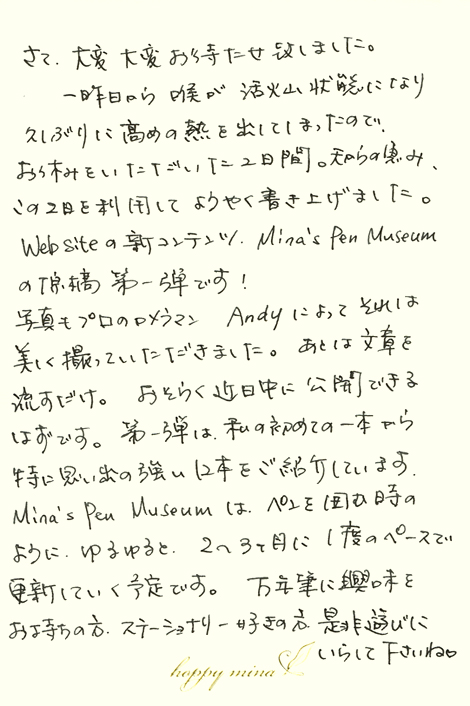 さて、大変大変お待たせ致しました。
一昨日から喉が活火山状態になり
久しぶりに高めの熱を出してしまったので、
お休みをいただいた2日間。天からの恵み、
この2日を利用してようやく書き上げました。
Web siteの新コンテンツ、Mina's Pen Museum
の原稿第一弾です！
写真もプロのカメラマン Andyによってそれは
美しく撮っていただきました。あとは文章を
流すだけ。おそらく近日中に公開できる
はずです。第一弾は、私の初めての一本から
特に思い出の強い12本をご紹介しています。
Mina's Pen Museumは、ペンを囲む時の
ように、ゆるゆると、2〜3ヶ月に1度のペースで
更新していく予定です。万年筆に興味を
お持ちの方、ステーショナリー好きの方 是非遊びに
いらして下さいね。
happy mina